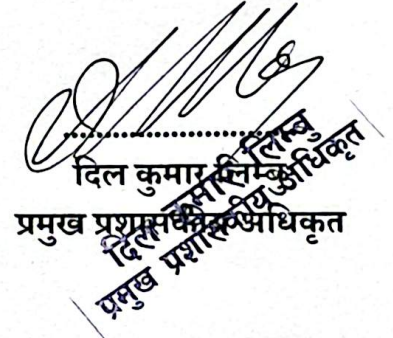 दिल कुमार लिम्बु
प्रमुख प्रशासकीय अधिकृत
दिल कुमार लिम्बु
प्रमुख प्रशासकीय अधिकृत